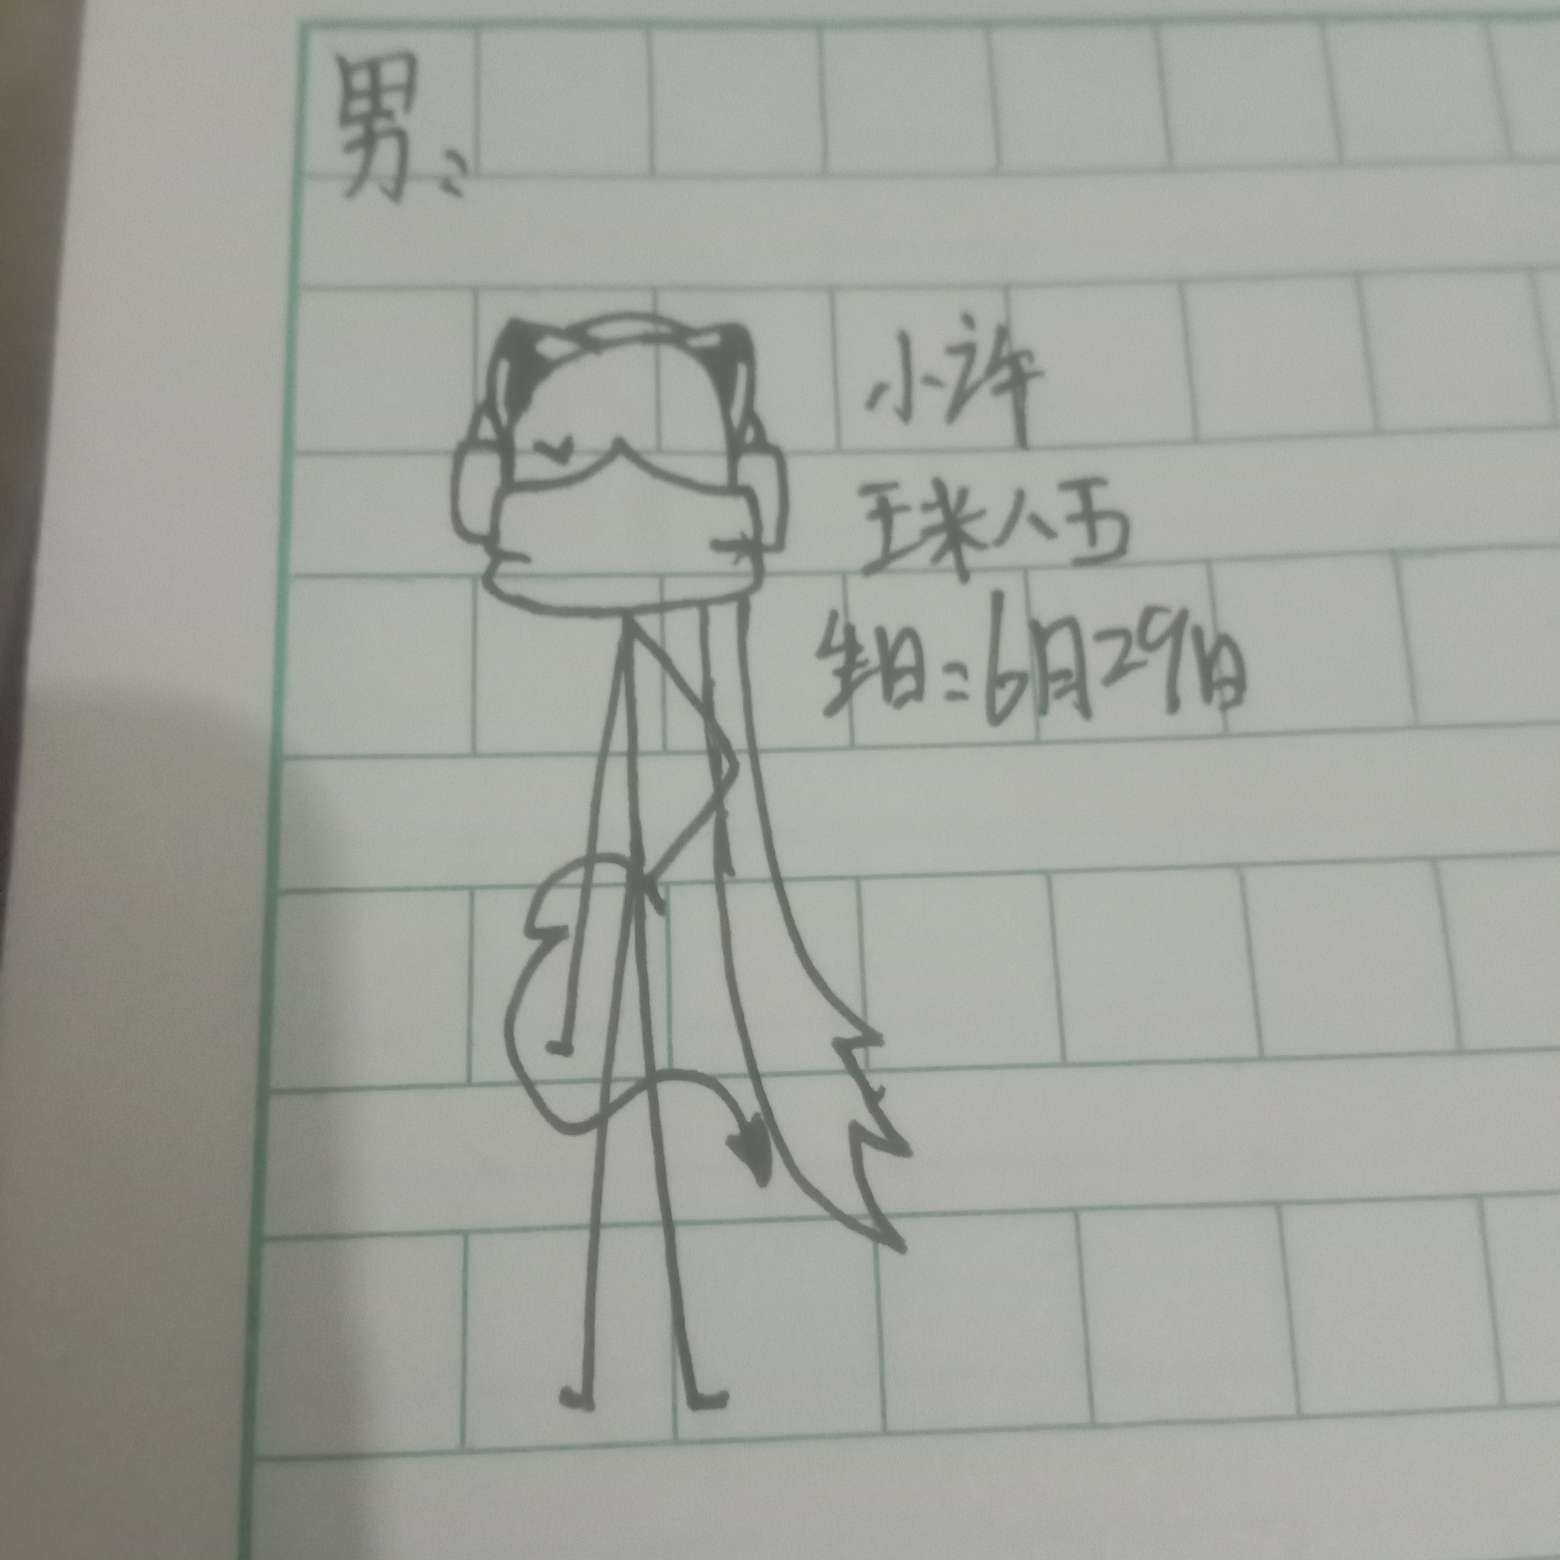 男：
小许
王米人五
生日：6月29日